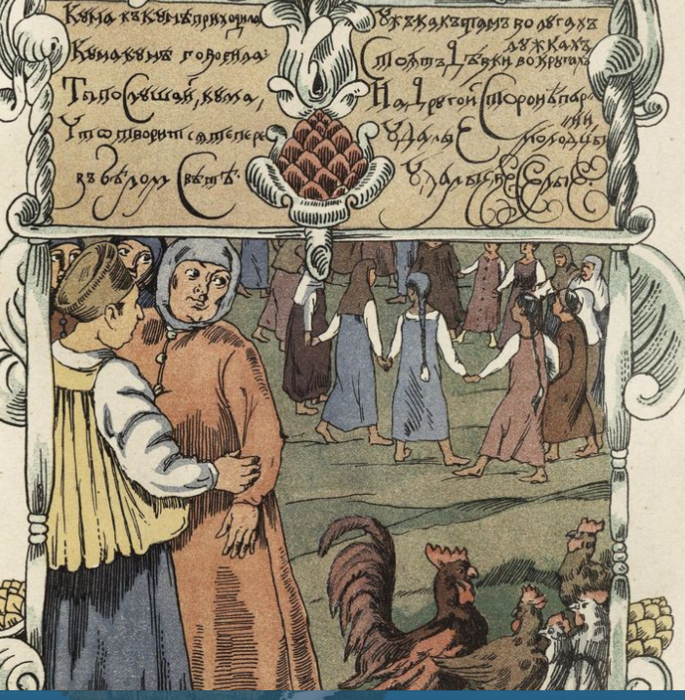 Кума къ кумѣ приходила
Кума кумѣ говорила:
Ты послушай, кума,
Что творится теперь
въ бѣлом Свѣтѣ:
Ужъ какъ тамъ во лугахъ
лужкахъ
Стоятъ Дѣвки во кругахъ
На другой Сторонѣ пар-
ни
Удалые
молодцы